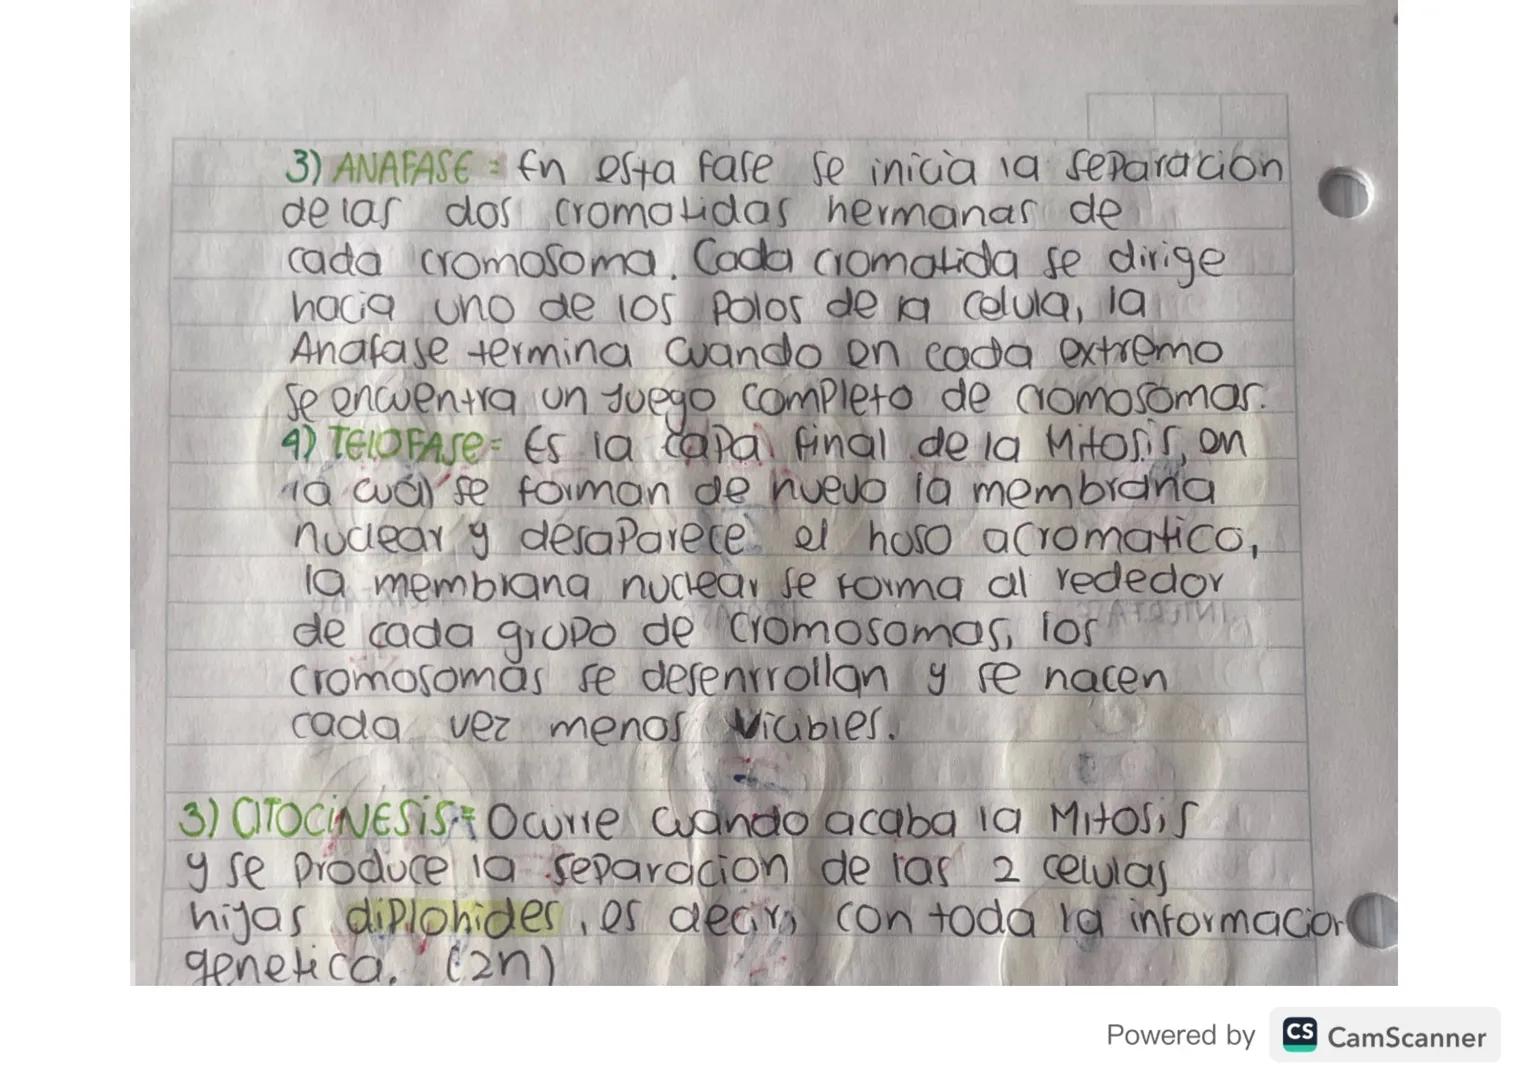 3) ANAFASE = En esta fase se inicia la separación
de las dos cromatidas hermanas de
cada cromosoma. Cada cromatida se dirige
hacia uno de los polos de la celula, la
Anafase termina cuando en cada extremo
se encuentra un juego completo de cromosomas.
4) TELOFASE = Es la capa final de la Mitosis, en
la cual se forman de nuevo la membrana
nuclear y desaparece el huso acromatico,
la membrana nuclear se forma al rededor
de cada grupo de cromosomas, los
cromosomas se desenrrollan y se hacen
cada vez menos viables.
3) CITOCINESIS = Ocurre cuando acaba la Mitosis
y se produce la separacion de las 2 celulas
hijas diplohides, es decir, con toda la informacion
genetica. (2n)
Powered by CS CamScanner